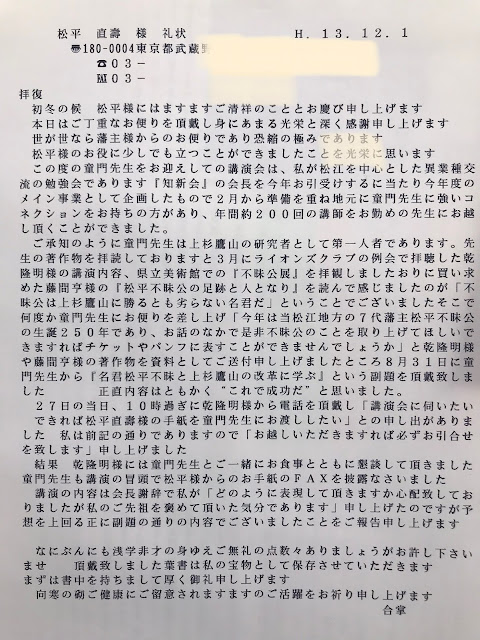 松平 直壽 様 礼状 H.13.12.1
〠180-0004東京都武蔵野
☎03-
℻03-
拝復
初冬の候 松平様にはますますご清祥のこととお慶び申し上げます
本日はご丁重なお便りを頂戴し身にあまる光栄と深く感謝申し上げます
世が世なら藩主様からのお便りであり恐縮の極みであります
松平様のお役に少しでも立つことができましたことを光栄に思います
この度の童門先生をお迎えしての講演会は、私が松江を中心とした異業種交
流の勉強会であります『知新会』の会長を今年お引受けするに当たり今年度の
メイン事業として企画したもので2月から準備を重ね地元に童門先生に強いコ
ネクションをお持ちの方があり、年間約200回の講師をお勤めの先生にお越
し頂くことができました。
ご承知のように童門先生は上杉鷹山の研究者として第一人者であります。先
生の著作物を拝読しておりますと3月にライオンズクラブの例会で拝聴した乾
隆明様の講演内容、県立美術館での『不昧公展』を拝観しましたおりに買い求
めた藤間亨様の『松平不昧公の足跡と人となり』を読んで感じましたのが「不
昧公は上杉鷹山に勝るとも劣らない名君だ」ということでございましたそこで
何度か童門先生にお便りを差し上げ「今年は当松江地方の7代藩主松平不昧公
の生誕250年であり、お話のなかで是非不昧公のことを取り上げてほしいで
きますればチケットやパンフに表すことができませんでしょうか」と乾隆明様
や藤間亨様の著作物を資料としてご送付申し上げましたところ8月31日に童
門先生から『名君松平不昧と上杉鷹山の改革に学ぶ』という副題を頂戴致しま
した 正直内容はともかく“これで成功だ”と思いました。
27日の当日、10時過ぎに乾隆明様から電話を頂戴し「講演会に伺いたい
できれば松平直壽様の手紙を童門先生にお渡ししたい」との申し出がありま
した 私は前記の通りでありますので「お越しいただきますれば必ずお引合せ
を致します」申し上げました
結果 乾隆明様には童門先生とご一緒にお食事とともに懇談して頂きました
童門先生も講演の冒頭で松平様からのお手紙のFAXを披露なさいました
講演の内容は会長謝辞で私が「どのように表現して頂きますか心配致してお
りましたが私のご先祖を褒めて頂いた気分であります」申し上げたのですが予
想を上回る正に副題の通りの内容でございましたことをご報告申し上げます
なにぶんにも浅学非才の身ゆえご無礼の点数々ありましょうがお許し下さい
ませ 頂戴致しました葉書は私の宝物として保存させていただきます
まずは書中を持ちまして厚く御礼申し上げます
向寒の砌ご健康にご留意されますますのご活躍をお祈り申し上げます
合掌